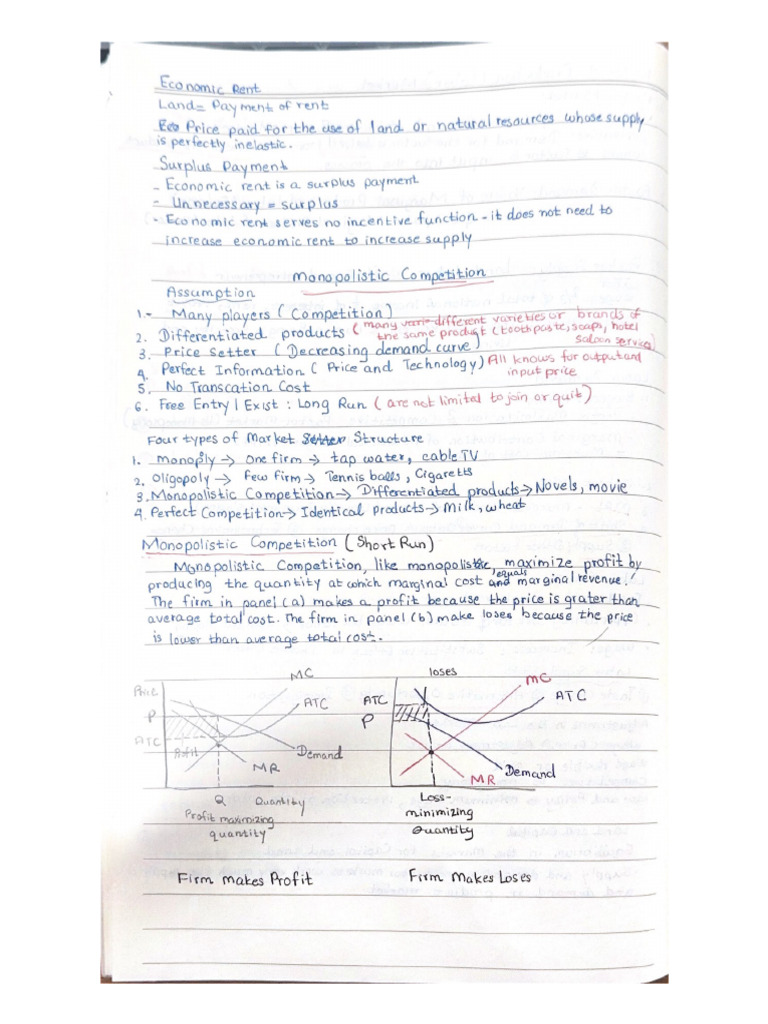 Economic Rent
Land = Payment of rent
Price paid for the use of land or natural resources whose supply
is perfectly inelastic.
Surplus Payment
- Economic rent is a surplus payment
- Unnecessary = surplus
- Economic rent serves no incentive function - it does not need to
increase economic rent to increase supply
Monopolistic Competition
Assumption
1.- Many players (Competition)
2. Differentiated products (many different varieties or brands of
the same product (toothpaste, soap, hotel
saloon service)
3. Price Setter (Decreasing demand curve)
4. Perfect Information (Price and Technology) All knows for output and
input price
5. No Transcation Cost
6. Free Entry / Exist : Long Run (are not limited to join or quit)
Four types of Market Structure
1. Monoply → One firm → tap water, cable TV
2. Oligopoly → Few firm → Tennis balls, Cigaretts
3. Monopolistic Competition → Differentiated products → Novels, movie
4. Perfect Competition → Identical products → Milk, wheat
Monopolistic Competition (Short Run)
Monopolistic Competition, like monopolistic, maximize profit by
producing the quantity at which marginal cost equals marginal revenue.
The firm in panel (a) makes a profit because the price is grater than
average total cost. The firm in panel (b) make loses because the price
is lower than average total cost.
Price
P
ATC
Profit
MC
ATC
Demand
MR
Q Quantity
Profit maximizing
quantity
Firm makes Profit
loses
MC
ATC
ATC
P
Demand
MR
Loss-
minimizing
Quantity
Firm Makes Loses